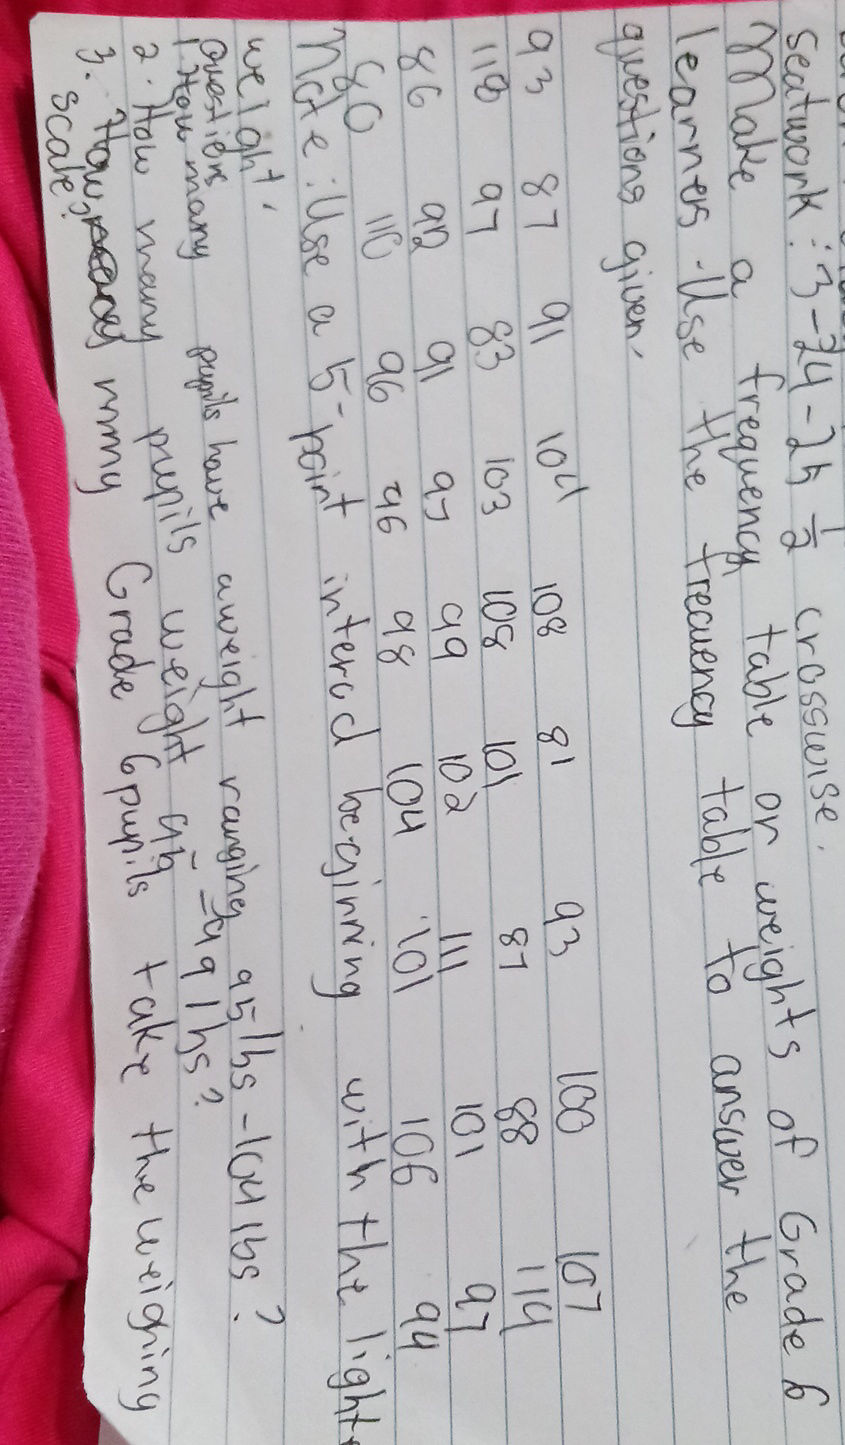 seatwork: 3-24-25 1/2 crosswise.
Make a frequency table or weights of Grade 6
learners. Use the frecuency table to answer the
questions given.
93 87 91 104 108 81 93 100 107
118 97 83 103 108 101 87 88 114
86 92 91 97 99 102 111 101 97
80 110 96 96 98 104 101 106 94
Note: Use a 5-point interval beginning with the light
weight.
Questions
1. How many pupils have a weight ranging 95 lbs - 104 lbs?
2. How many pupils weight 95 - 99 lbs?
3. How many Grade 6 pupils take the weighing
scale?